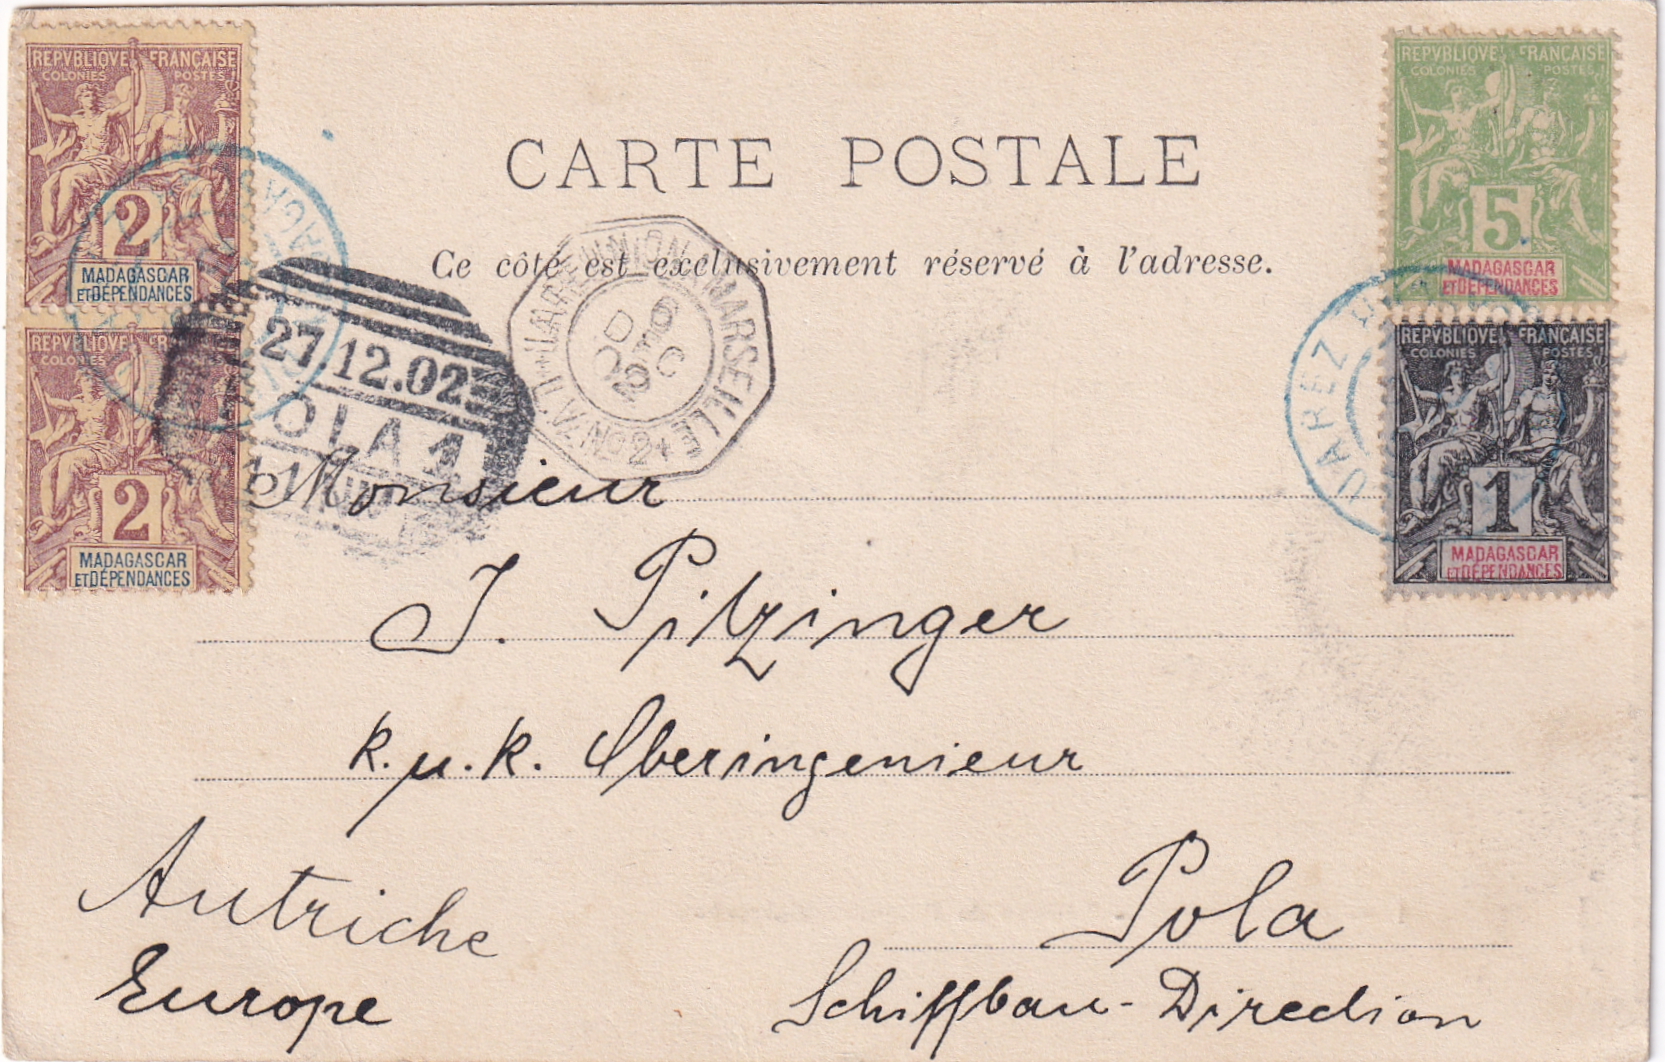 REPVBLIQVE FRANÇAISE
COLONIES POSTES
2
MADAGASCAR
ET DÉPENDANCES
REPVBLIQVE FRANÇAISE
COLONIES POSTES
2
MADAGASCAR
ET DÉPENDANCES
REPVBLIQVE FRANÇAISE
COLONIES POSTES
5
MADAGASCAR
ET DÉPENDANCES
REPVBLIQVE FRANÇAISE
COLONIES POSTES
1
MADAGASCAR
ET DÉPENDANCES
CARTE POSTALE
Ce côté est exclusivement réservé à l'adresse.
LA REUNION A MARSEILLE
6
DEC
02
27 12.02
POLA 1
UAREZ
Monsieur
J. Pitzinger
k.u.k. Oberingenieur
Autriche
Europe
Pola
Schiffbau-Direction